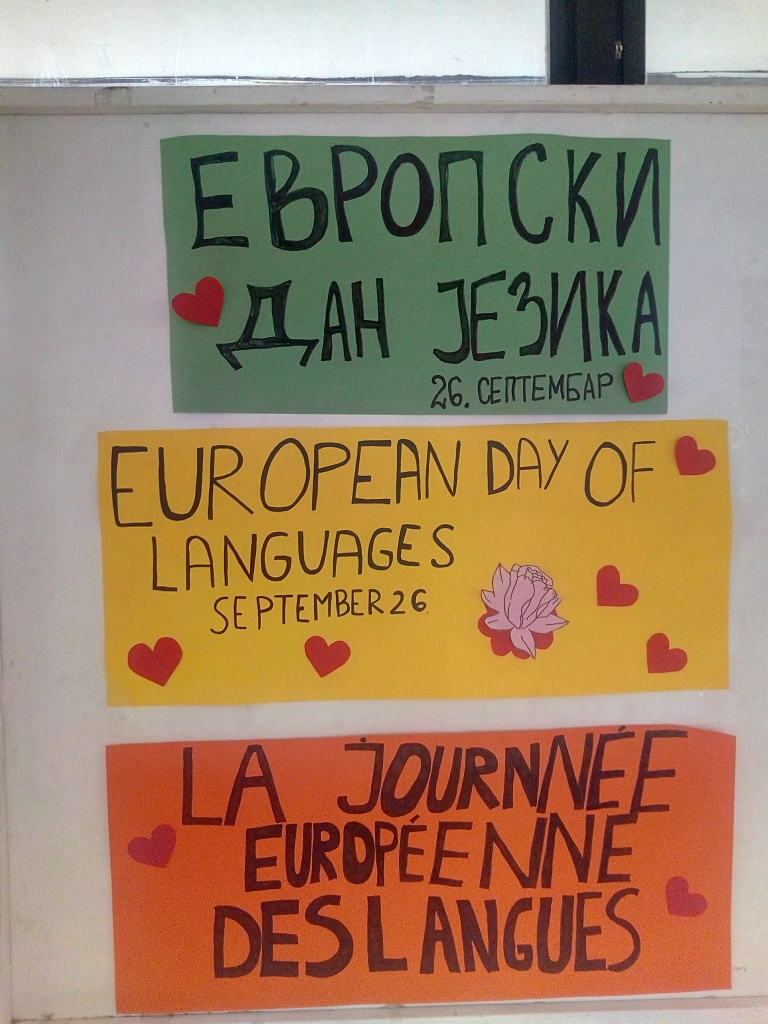 ЕВРОПСКИ
ДАН ЈЕЗИКА
26. СЕПТЕМБАР
EUROPEAN DAY OF
LANGUAGES
SEPTEMBER 26.
LA JOURNNÉE
EUROPÉENNE
DES LANGUES